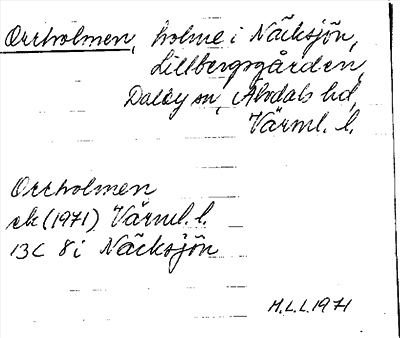 Orrholmen, holme i Näcksjön,
Lillbergsgården,
Dalby sn, Älvdals hd,
Värml. l.
Orrholmen
ek (1971) Värml. l.
13C 8i Näcksjön
M.L.L. 1971